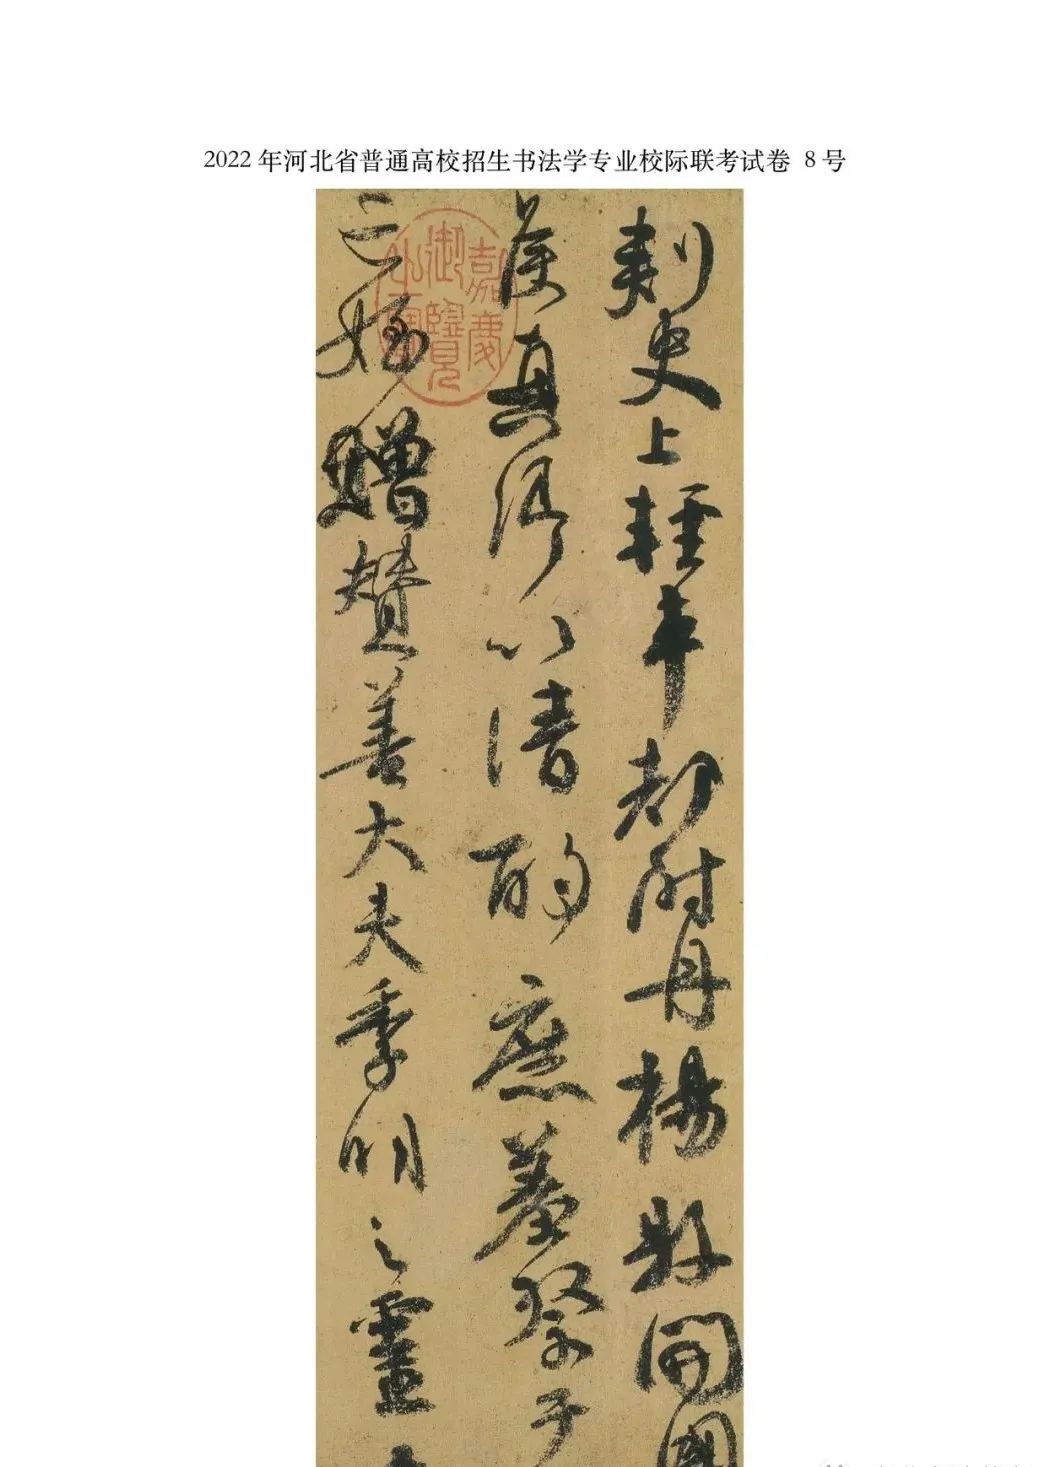 2022 年河北省普通高校招生书法学专业校际联考试卷 8 号
刺史上輕車都尉丹楊縣開國
侯真卿以清酌庶羞祭于
亡姪贈贊善大夫季明之靈
嘉慶
御覽
之寶